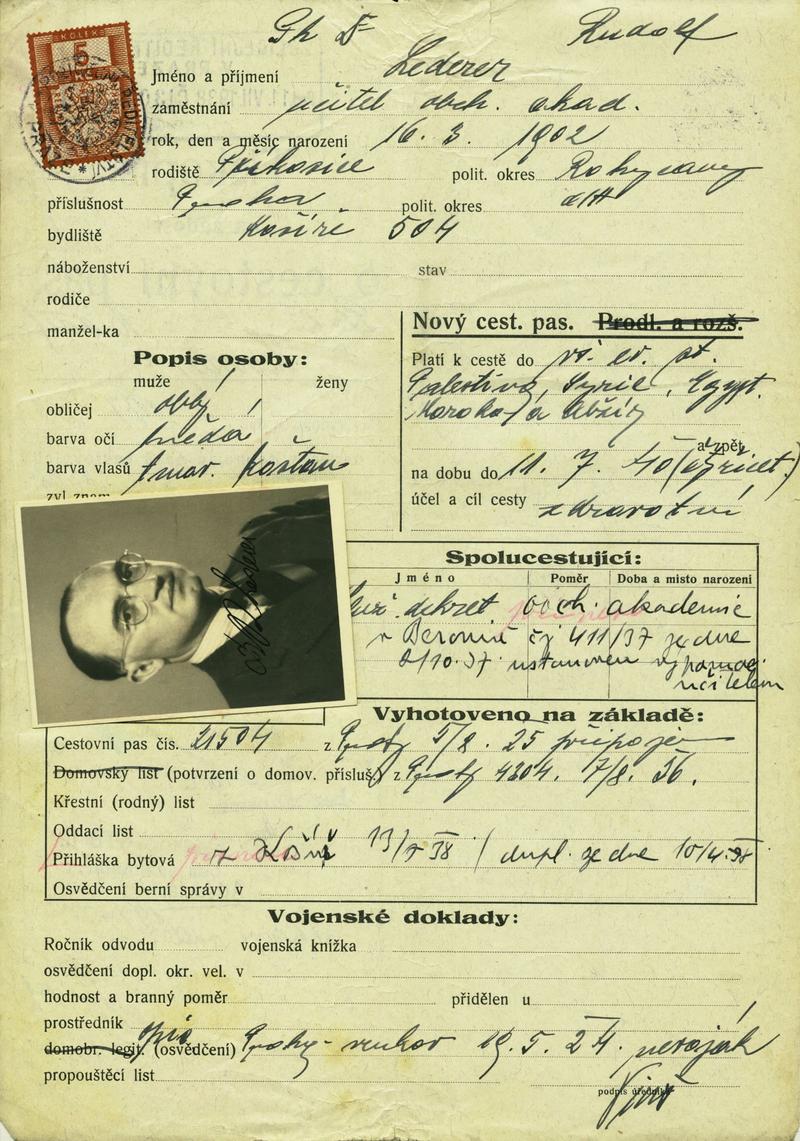 Ph Dr Rudolf
KOLEK
5
Jméno a příjmení Lederer
zaměstnání učitel obch. akad.
rok, den a měsíc narození 16. 3. 1902
rodiště Příkosice polit. okres Rokycany
příslušnost Praha polit. okres dtt
bydliště Košíře 504
náboženství stav
rodiče
manžel-ka
Nový cest. pas. Prodl. a rozš.
Popis osoby:
muže ženy
obličej obly
barva očí hnědá
barva vlasů tmav. kaštan
zvl. znam.
Platí k cestě do vš. ev. st.
Palestiny, Syrie, Egypt.
Maroka a Alžír
a zpět
na dobu do 11. 7. 40
účel a cíl cesty zdravotní
Spolucestující:
Jméno Poměr Doba a misto narození
dekret obch. akademie
v Berouně čj 411/37 ze dne
ustanoven výpomoc.
učitelem
Vyhotoveno na základě:
Cestovní pas čís. 21504 z Prahy 5/8. 25 připojen
Domovský list (potvrzení o domov. přísluš.) z Prahy 4204. 7/8. 36.
Křestní (rodný) list
Oddací list
Přihláška bytová z Košíř 13/ 38 / dupl. ze dne 10/4.38
Osvědčení berní správy v
Vojenské doklady:
Ročník odvodu vojenská knížka
osvědčení dopl. okr. vel. v
hodnost a branný poměr přidělen u
prostředník
domobr. legit. (osvědčení) Prahy - venkov 19. 5. 24. nevoják
propouštěcí list
podpis úředníka